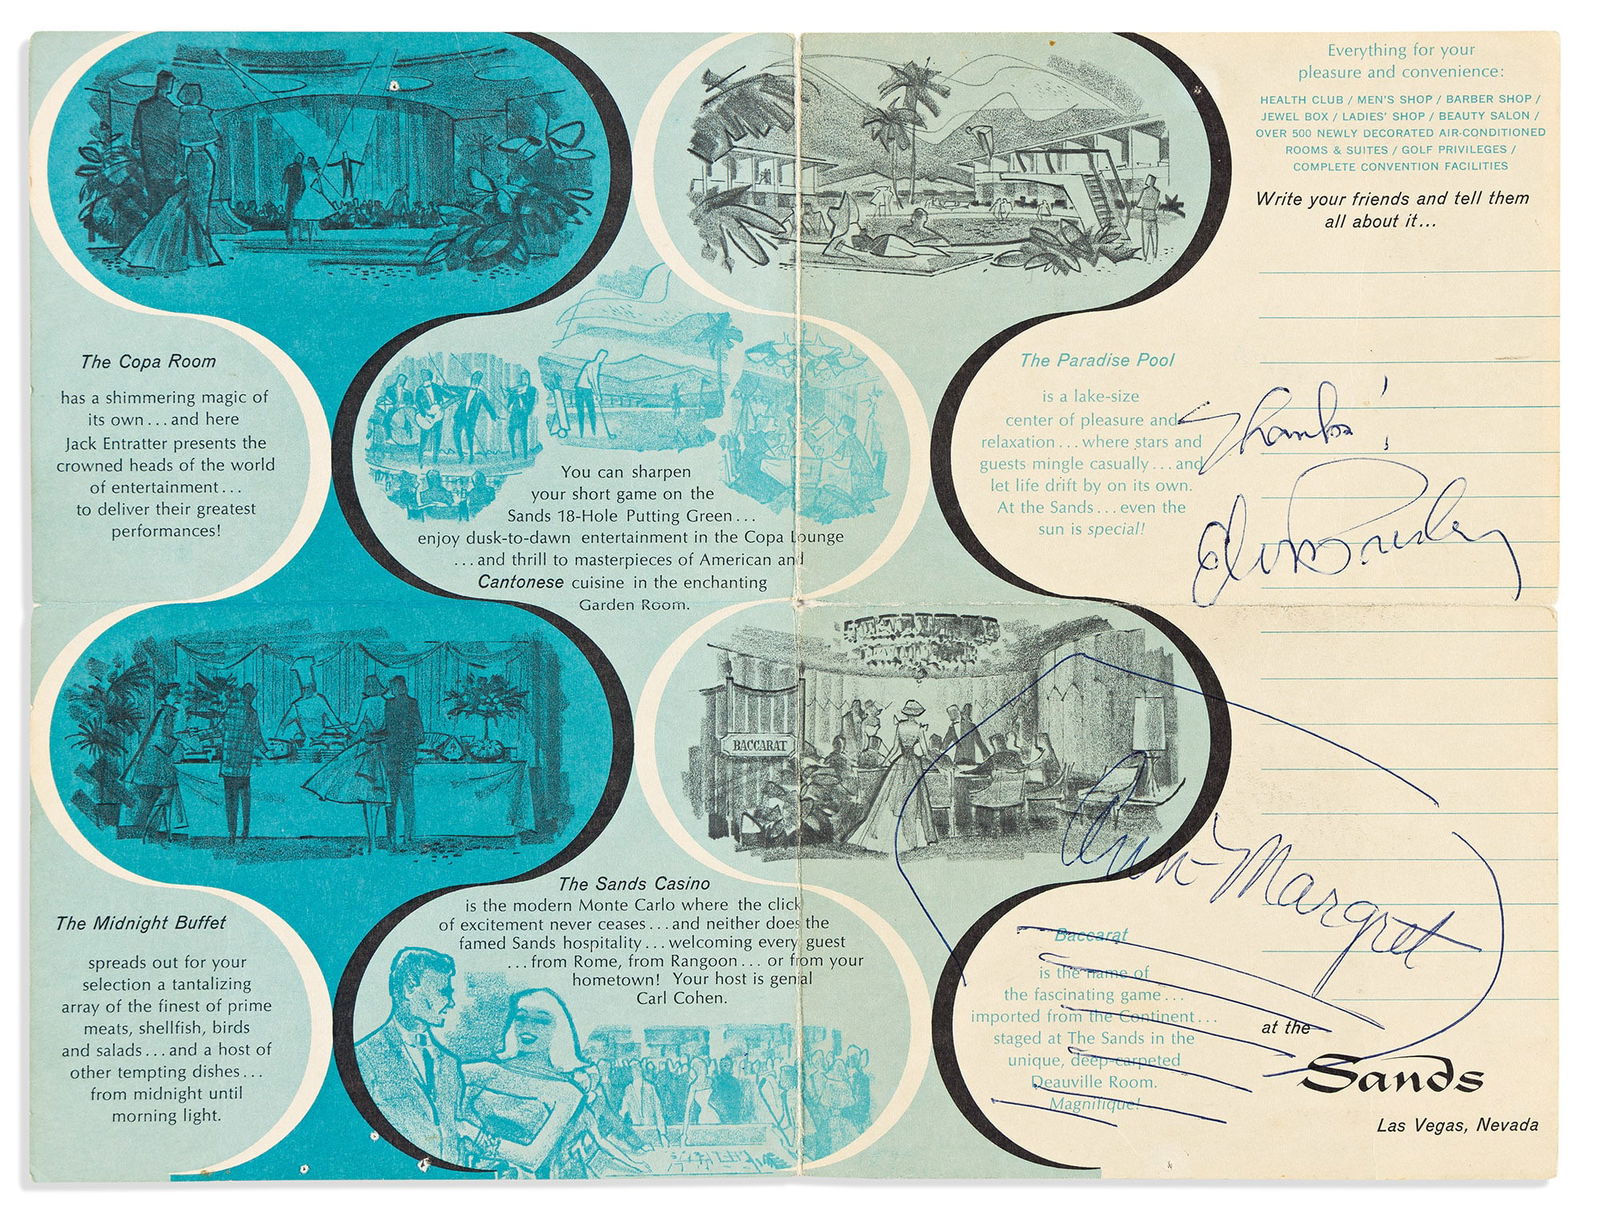 The Copa Room
has a shimmering magic of
its own...and here
Jack Entratter presents the
crowned heads of the world
of entertainment...
to deliver their greatest
performances!
The Midnight Buffet
spreads out for your
selection a tantalizing
array of the finest of prime
meats, shellfish, birds
and salads...and a host of
other tempting dishes...
from midnight until
morning light.
You can sharpen
your short game on the
Sands 18-Hole Putting Green...
enjoy dusk-to-dawn entertainment in the Copa Lounge
...and thrill to masterpieces of American and
Cantonese cuisine in the enchanting
Garden Room.
BACCARAT
The Sands Casino
is the modern Monte Carlo where the click
of excitement never ceases...and neither does the
famed Sands hospitality...welcoming every guest
...from Rome, from Rangoon...or from your
hometown! Your host is genial
Carl Cohen.
The Paradise Pool
is a lake-size
center of pleasure and
relaxation...where stars and
guests mingle casually...and
let life drift by on its own.
At the Sands...even the
sun is special!
Baccarat
is the name of
the fascinating game...
imported from the Continent...
staged at The Sands in the
unique, deep-carpeted
Deauville Room.
Magnifique!
Everything for your
pleasure and convenience:
HEALTH CLUB / MEN'S SHOP / BARBER SHOP /
JEWEL BOX / LADIES' SHOP / BEAUTY SALON /
OVER 500 NEWLY DECORATED AIR-CONDITIONED
ROOMS & SUITES / GOLF PRIVILEGES /
COMPLETE CONVENTION FACILITIES
Write your friends and tell them
all about it...
Thanks!
Elvis Presley
Ann-Margret
at the
Sands
Las Vegas, Nevada